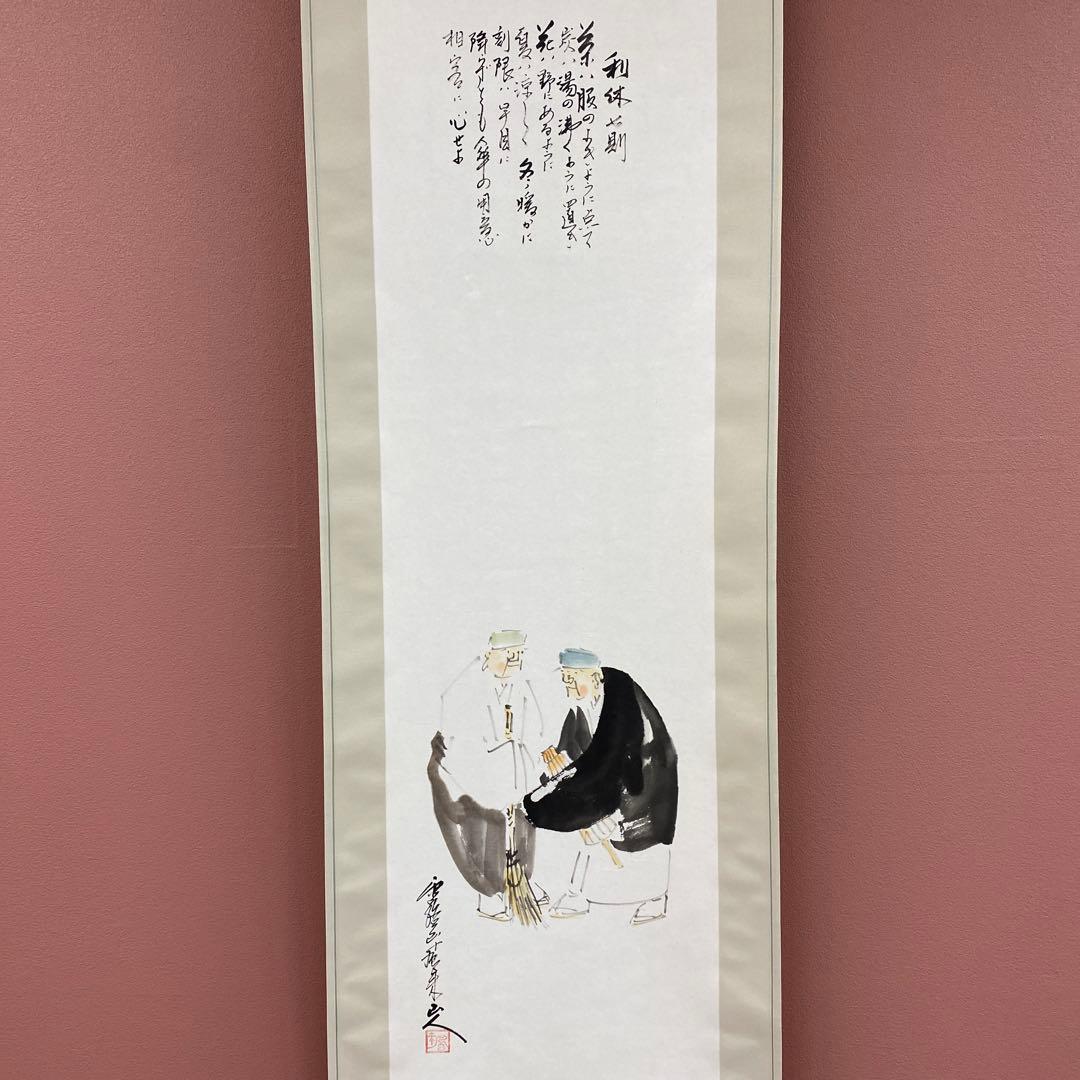 利休七則
茶ハ服のよきように点て
炭ハ湯の沸くように置き
花ハ野にあるように
夏ハ涼しく 冬ハ暖かに
刻限ハ早目に
降らずとも傘の用意
相客に心せよ